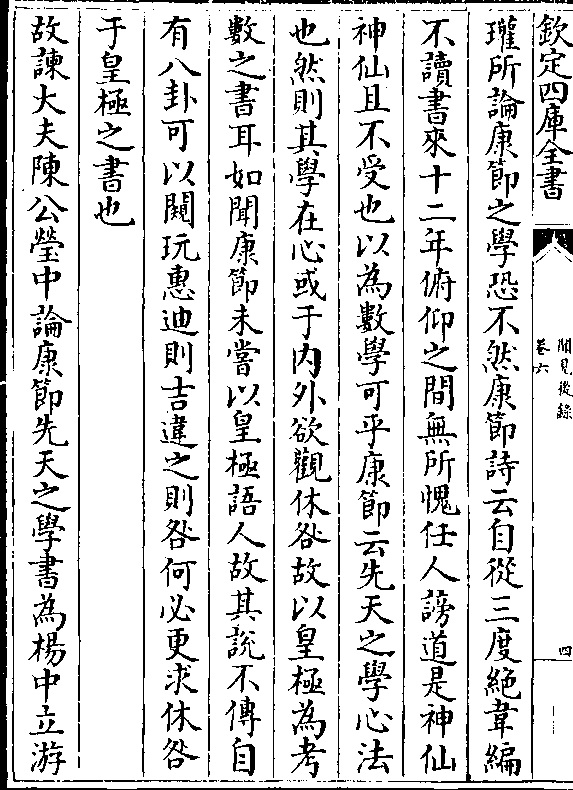 欽定四庫全書
聞見後錄
卷六
四
瓘所論康節之學恐不然康節詩云自從三度絶韋編
不讀書來十二年俯仰之間無所愧任人謗道是神仙
神仙且不受也以為數學可乎康節云先天之學心法
也然則其學在心或于内外欲觀休咎故以皇極為考
數之書耳如聞康節未嘗以皇極語人故其說不傳自
有八卦可以闚玩惠迪則吉違之則咎何必更求休咎
于皇極之書也
故諫大夫陳公瑩中論康節先天之學書為楊中立游